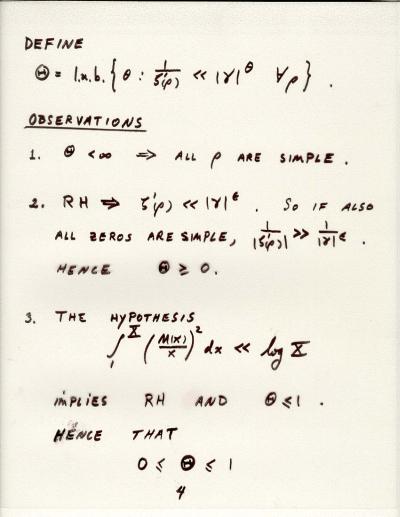 DEFINE
Θ = l.u.b. { θ : 1/ζ'(ρ) << |γ|^θ ∀ρ } .
OBSERVATIONS
1. Θ < ∞ ⇒ ALL ρ ARE SIMPLE .
2. RH ⇒ ζ'(ρ) << |γ|^ε . SO IF ALSO
ALL ZEROS ARE SIMPLE, 1/|ζ'(ρ)| >> 1/|γ|^ε .
HENCE Θ ≥ 0 .
3. THE HYPOTHESIS
∫_1^X (M(x)/x)^2 dx << log X
IMPLIES RH AND Θ ≤ 1 .
HENCE THAT
0 ≤ Θ ≤ 1
4